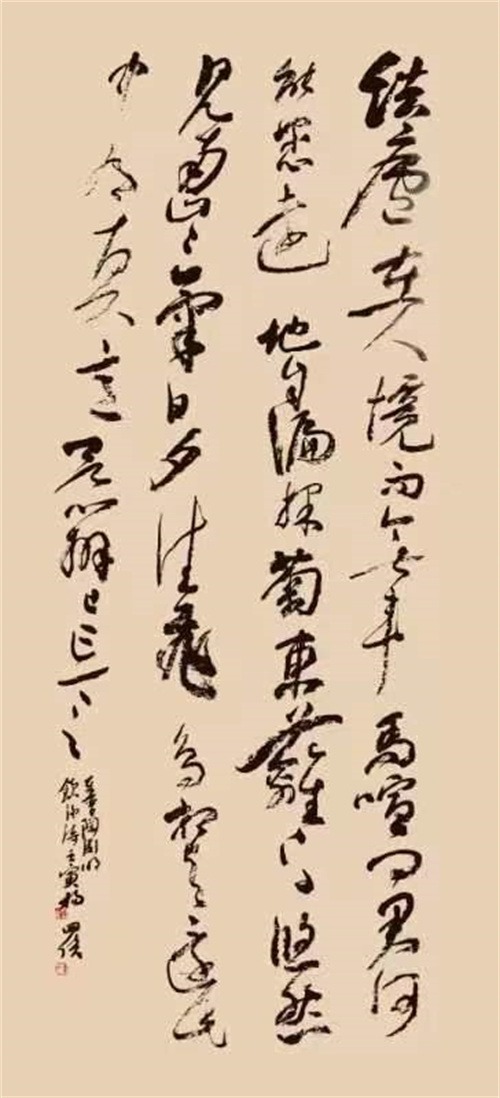 結廬在人境而無車馬喧問君何
能爾心遠地自偏採菊東籬下悠然
見南山山氣日夕佳飛鳥相與還此
中有真意欲辨已忘言
書陶淵明
飲酒詩壬寅